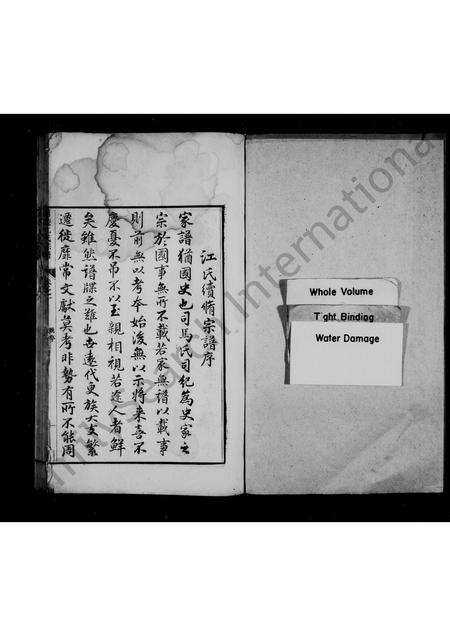 江氏續脩宗譜序
家譜猶國史也司馬氏司紀為史家之
宗於國事無所不載若家無譜以載事
則前無以考本始後無以示將來喜不
慶憂不吊不以至親相視若途人者鮮
矣雖然譜牒之難也世遠代更族大支繁
遷徙靡常文獻莫考非勢有所不能周
Whole Volume
Tight Binding
Water Damage
International